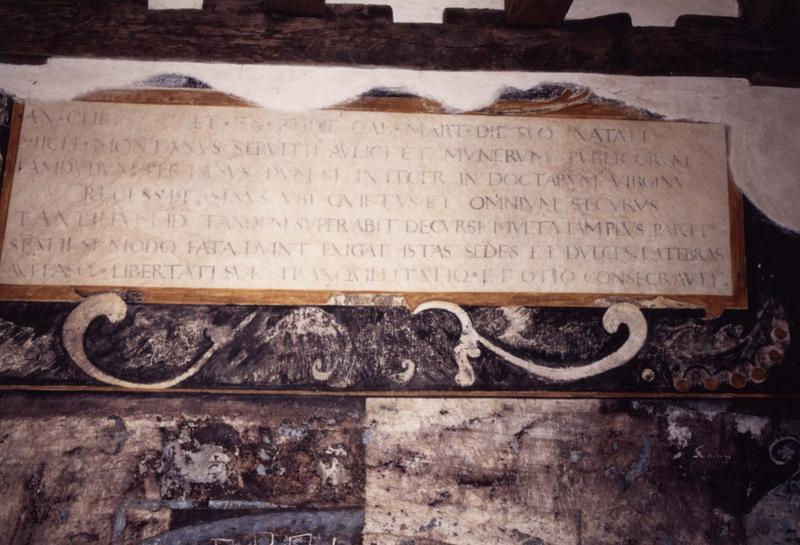 AN · CHR ET · PRIDIE CAL · MART · DIE SVO NATALI
MICH · MONTANVS · SERVITII AVLICI ET MVNERVM PVBLICORVM
IAMDVDVM PERTÆSVS DVM SE INTEGR IN DOCTARVM VIRGINV
RECESSIT SINVS VBI QVIETVS ET OMNIVM SECVRVS
TANDEM SUPERABIT DECVRSI MVLTA IAM PLVS PARTE
SPATII SI MODO FATA DVINT EXIGAT ISTAS SEDES ET DVLCES LATEBRAS
AVITASQ · LIBERTATI SVÆ TRANQVILLITATIQ · ET OTIO CONSECRAVIT